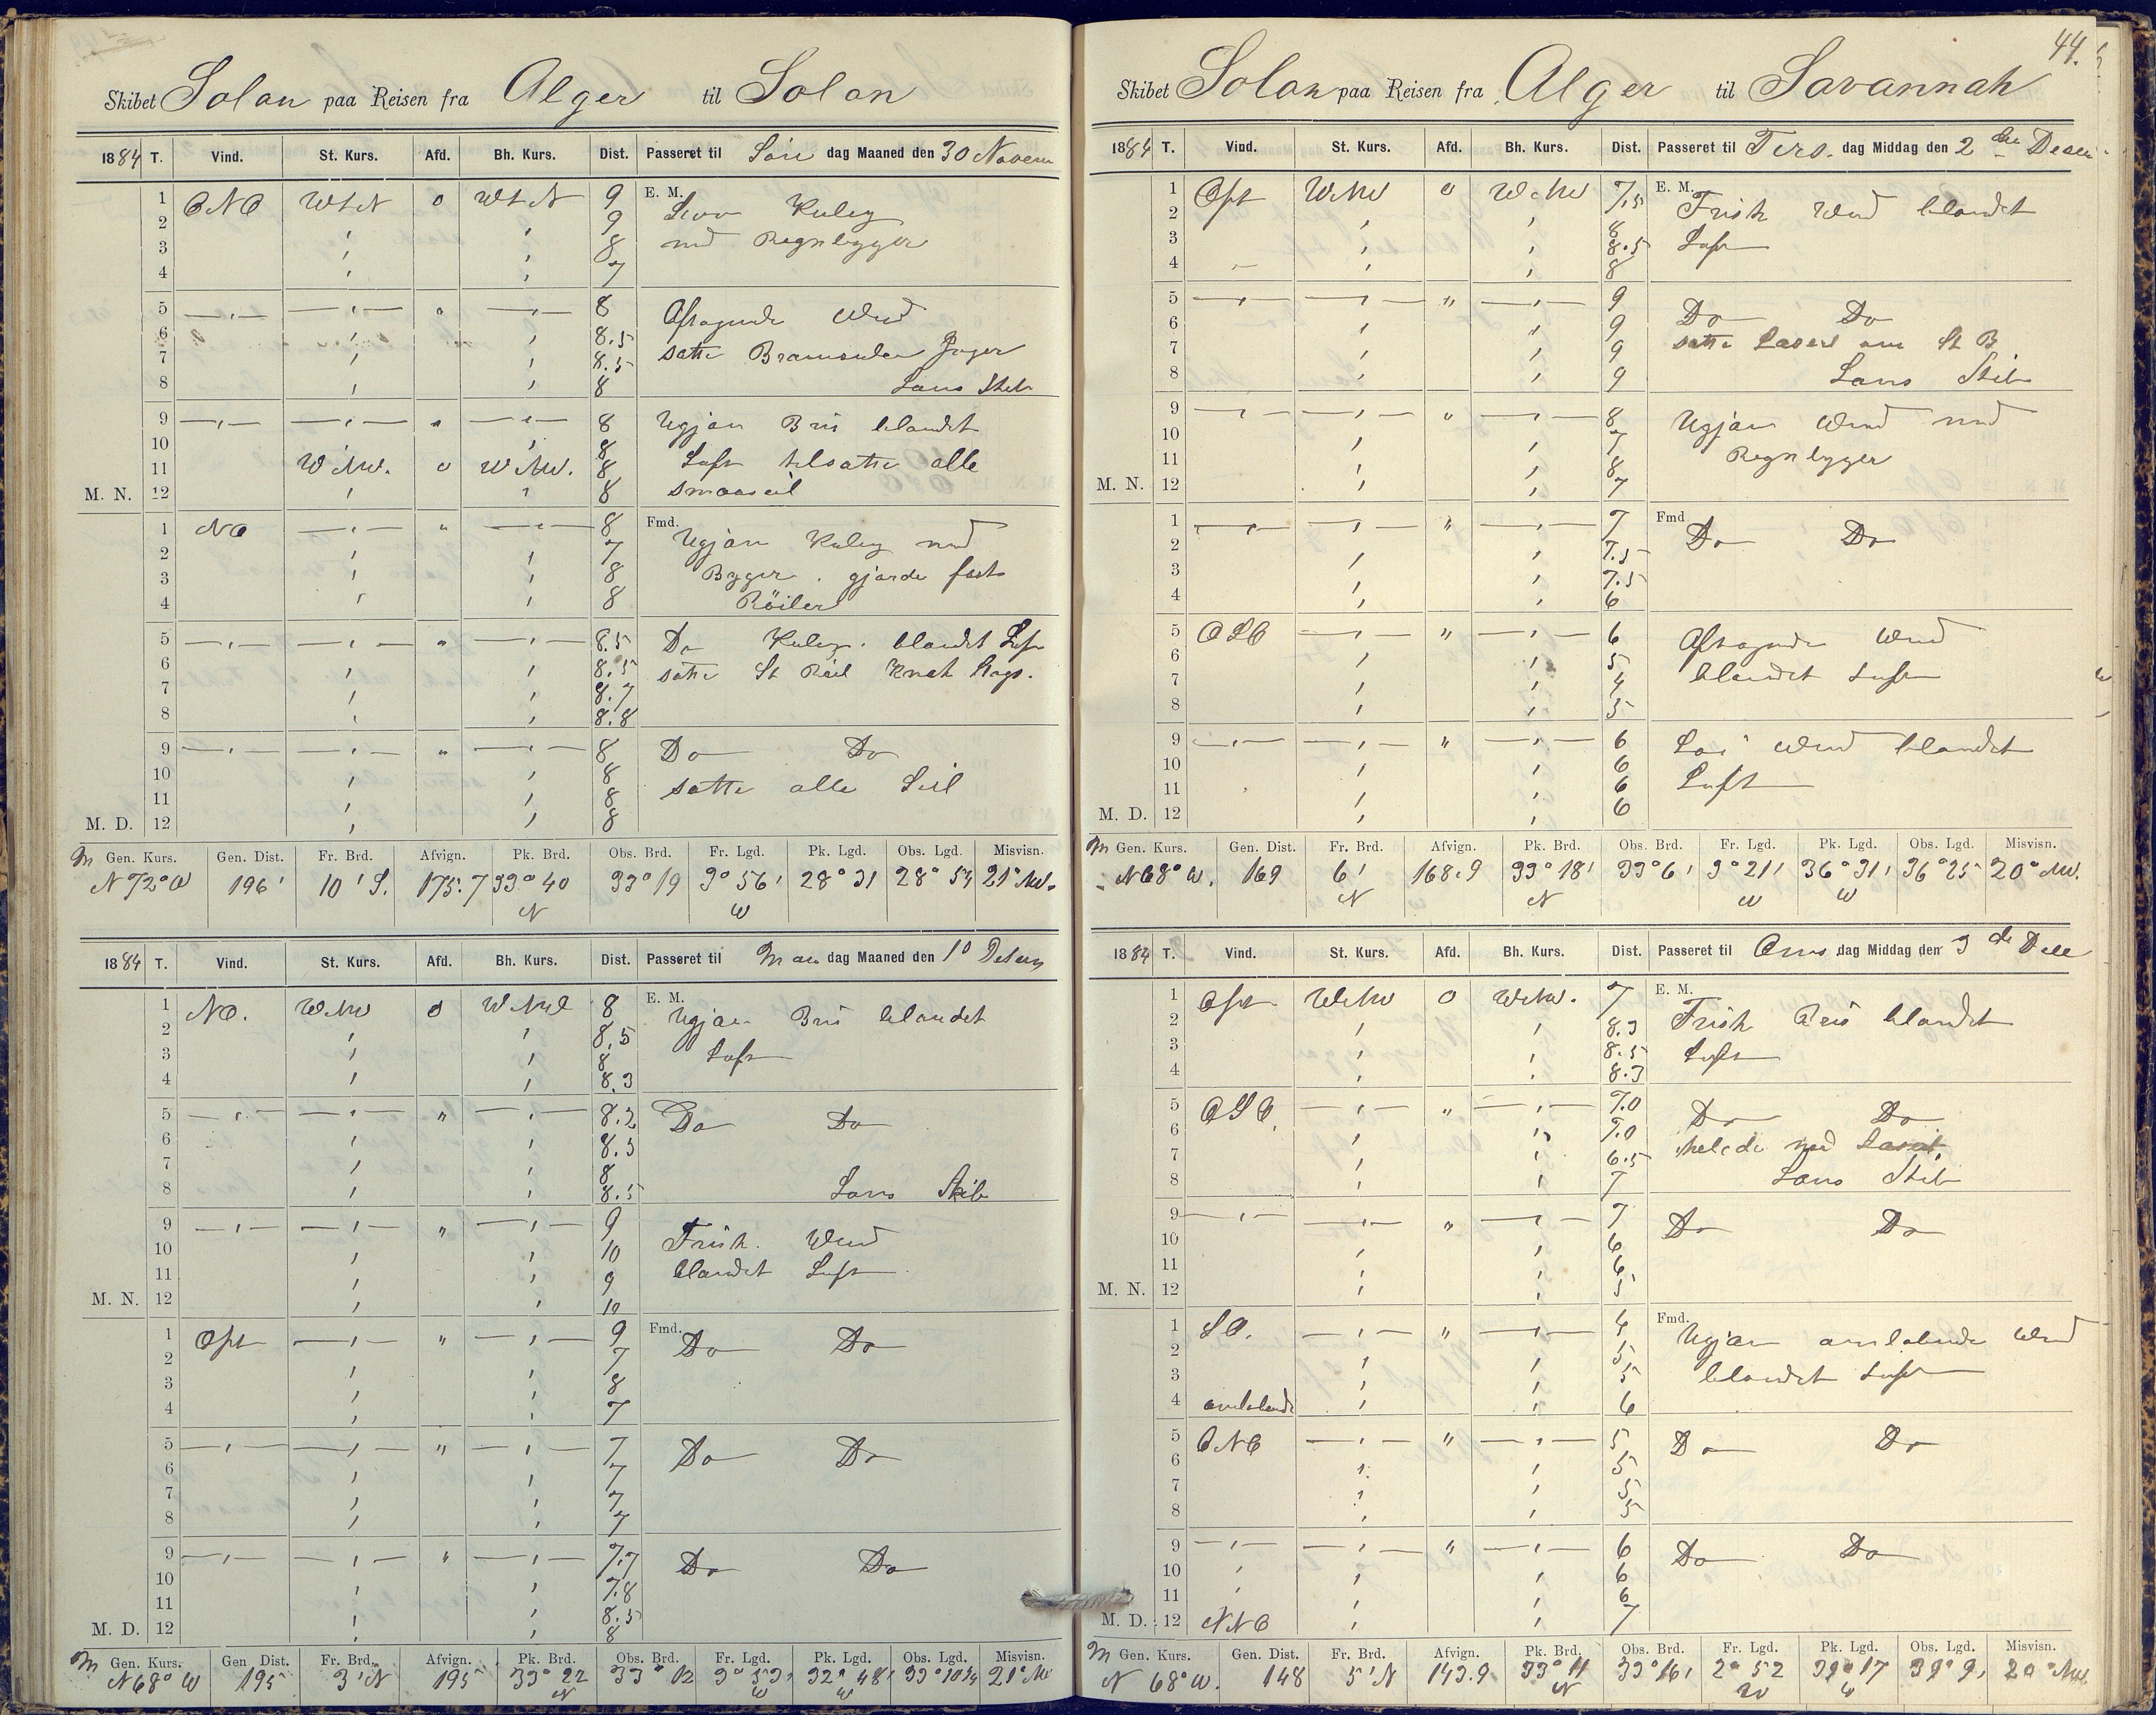 Skibet Solon paa Reisen fra Alger til Solon
1884 T. Vind. St. Kurs. Afd. Bh. Kurs. Dist. Passeret til Søn dag Maaned den 30 Novem
1 ONO WtN 0 WtN 9 E. M.
2 ' ' 9 Kuling
3 ' ' 8 med Regnbyger
4 ' ' 7
5 —"— —"— " —"— 8 Aftagende Vind
6 ' ' 8.5
7 ' ' 8.5 satte Bramseiler Jager
8 ' ' 8 Lans Skib
9 —"— —"— " —"— 8 Ugjævn Bris blandet
10 ' ' 8
11 WNW. 0 WNW. 8 Luft tilsatte alle
M. N. 12 ' ' 8 smaaseil
1 NO —"— " —"— 8 Fmd. Ugjævn Kuling med
2 ' ' 7
3 ' ' 8 Byger. gjorde fast
4 ' ' 8 Röiler
5 —"— —"— " —"— 8.5 Do Kuling. blandet Luft
6 ' ' 8.5 satte St Röil
7 ' ' 8.7
8 ' ' 8.8
9 —"— —"— " —"— 8 Do Do
10 ' ' 8 satte alle Seil
11 ' ' 8
M. D. 12 ' ' 8
M Gen. Kurs. Gen. Dist. Fr. Brd. Afvign. Pk. Brd. Obs. Brd. Fr. Lgd. Pk. Lgd. Obs. Lgd. Misvisn.
N 72° W 196' 10' S. 175.7 33° 40 33° 19 3° 56' 28° 31 28° 54 21° NW.
N W
1884 T. Vind. St. Kurs. Afd. Bh. Kurs. Dist. Passeret til Man dag Maaned den 1° Desem
1 NO. WNW 0 WNW 8 E. M. Ugjævn Bris blandet
2 ' ' 8.5
3 ' ' 8 Luft
4 ' ' 8.3
5 —"— —"— " —"— 8.2 Do Do
6 ' ' 8.3
7 ' ' 8
8 ' ' 8.5 Lans Skib
9 —"— —"— " —"— 9 Frisk. Vind
10 ' ' 10
11 ' ' 9 blandet Luft
M. N. 12 ' ' 10
1 Ost —"— " —"— 9 Fmd. Do Do
2 ' ' 7
3 ' ' 8
4 ' ' 7
5 —"— —"— " —"— 7 Do Do
6 ' ' 7
7 ' ' 7
8 ' ' 7
9 —"— —"— " —"— 7.7 Do Do
10 ' ' 7.8
11 ' ' 8.5
M. D. 12 ' ' 8
M Gen. Kurs. Gen Dist. Fr. Brd. Afvign. Pk. Brd. Obs. Brd. Fr. Lgd. Pk. Lgd. Obs. Lgd. Misvisn.
N 68° W 195 3' N 195 33° 22 33° 12 3° 53' 32° 48' 33° 10 21° NW
N W W
44.
Skibet Solon paa Reisen fra Alger til Savannah
1884 T. Vind. St. Kurs. Afd. Bh. Kurs. Dist. Passeret til Tirs. dag Middag den 2 den Desem
1 Ost WNW 0 WNW 7.5 E. M. Frisk Vind blandet
2 ' ' 8
3 ' ' 8.5 Luft
4 ' ' 8
5 —"— —"— " —"— 9 Do Do
6 ' ' 9 satte Læseil om St B
7 ' ' 9
8 ' ' 9 Lans Skib
9 —"— —"— " —"— 8 Ugjævn Vind med
10 ' ' 7
11 ' ' 8 Regnbyger
M. N. 12 ' ' 7
1 —"— —"— " —"— 7 Fmd Do Do
2 ' ' 7.5
3 ' ' 7.5
4 ' ' 6
5 OSO —"— " —"— 6 Aftagende Vind
6 ' ' 5
7 ' ' 4 blandet Luft
8 ' ' 5
9 —"— —"— " —"— 6 Løi Vind blandet
10 ' ' 6
11 ' ' 6 Luft
M. D. 12 ' ' 6
M Gen. Kurs. Gen. Dist. Fr. Brd. Afvign. Pk. Brd. Obs. Brd. Fr. Lgd. Pk. Lgd. Obs. Lgd. Misvisn.
N 68° W. 169 6' 168.9 33° 18' 33° 6' 3° 21' 36° 31' 36° 25 20° NW.
N W N W W
1884 T. Vind. St. Kurs. Afd. Bh. Kurs. Dist. Passeret til Ons dag Middag den 3 de Dece
1 Ost WNW 0 WNW. 7 E. M. Frisk Bris blandet
2 ' ' 8.3
3 ' ' 8.5 Luft
4 ' ' 8.3
5 OSO —"— " —"— 7.0 Do Do
6 ' ' 7.0
7 ' ' 6.5 halede ned Læseil
8 ' ' 7 Lans Skib
9 —"— —"— " —"— 7 Do Do
10 ' ' 6
11 ' ' 6
M. N. 12 ' ' 5
1 SO. —"— " —"— 4 Fmd. Ugjævn omløbende Vind
2 ' ' 5
3 ' ' 5 blandet Luft
4 omløbende ' ' 6
5 ONO —"— " —"— 5 Do Do
6 ' ' 5
7 ' ' 5
8 ' ' 5
9 —"— —"— " —"— 6 Do Do
10 ' ' ' 6
11 ' ' ' 6
M. D. 12 NNO ' ' 7
M Gen. Kurs. Gen. Dist. Fr. Brd. Afvign. Pk. Brd. Obs. Brd. Fr. Lgd. Pk. Lgd. Obs. Lgd. Misvisn.
N 68° W. 148 5' N 143.9 33° 11 33° 16' 2° 52 39° 17 39° 9' 20° NW.
N W W